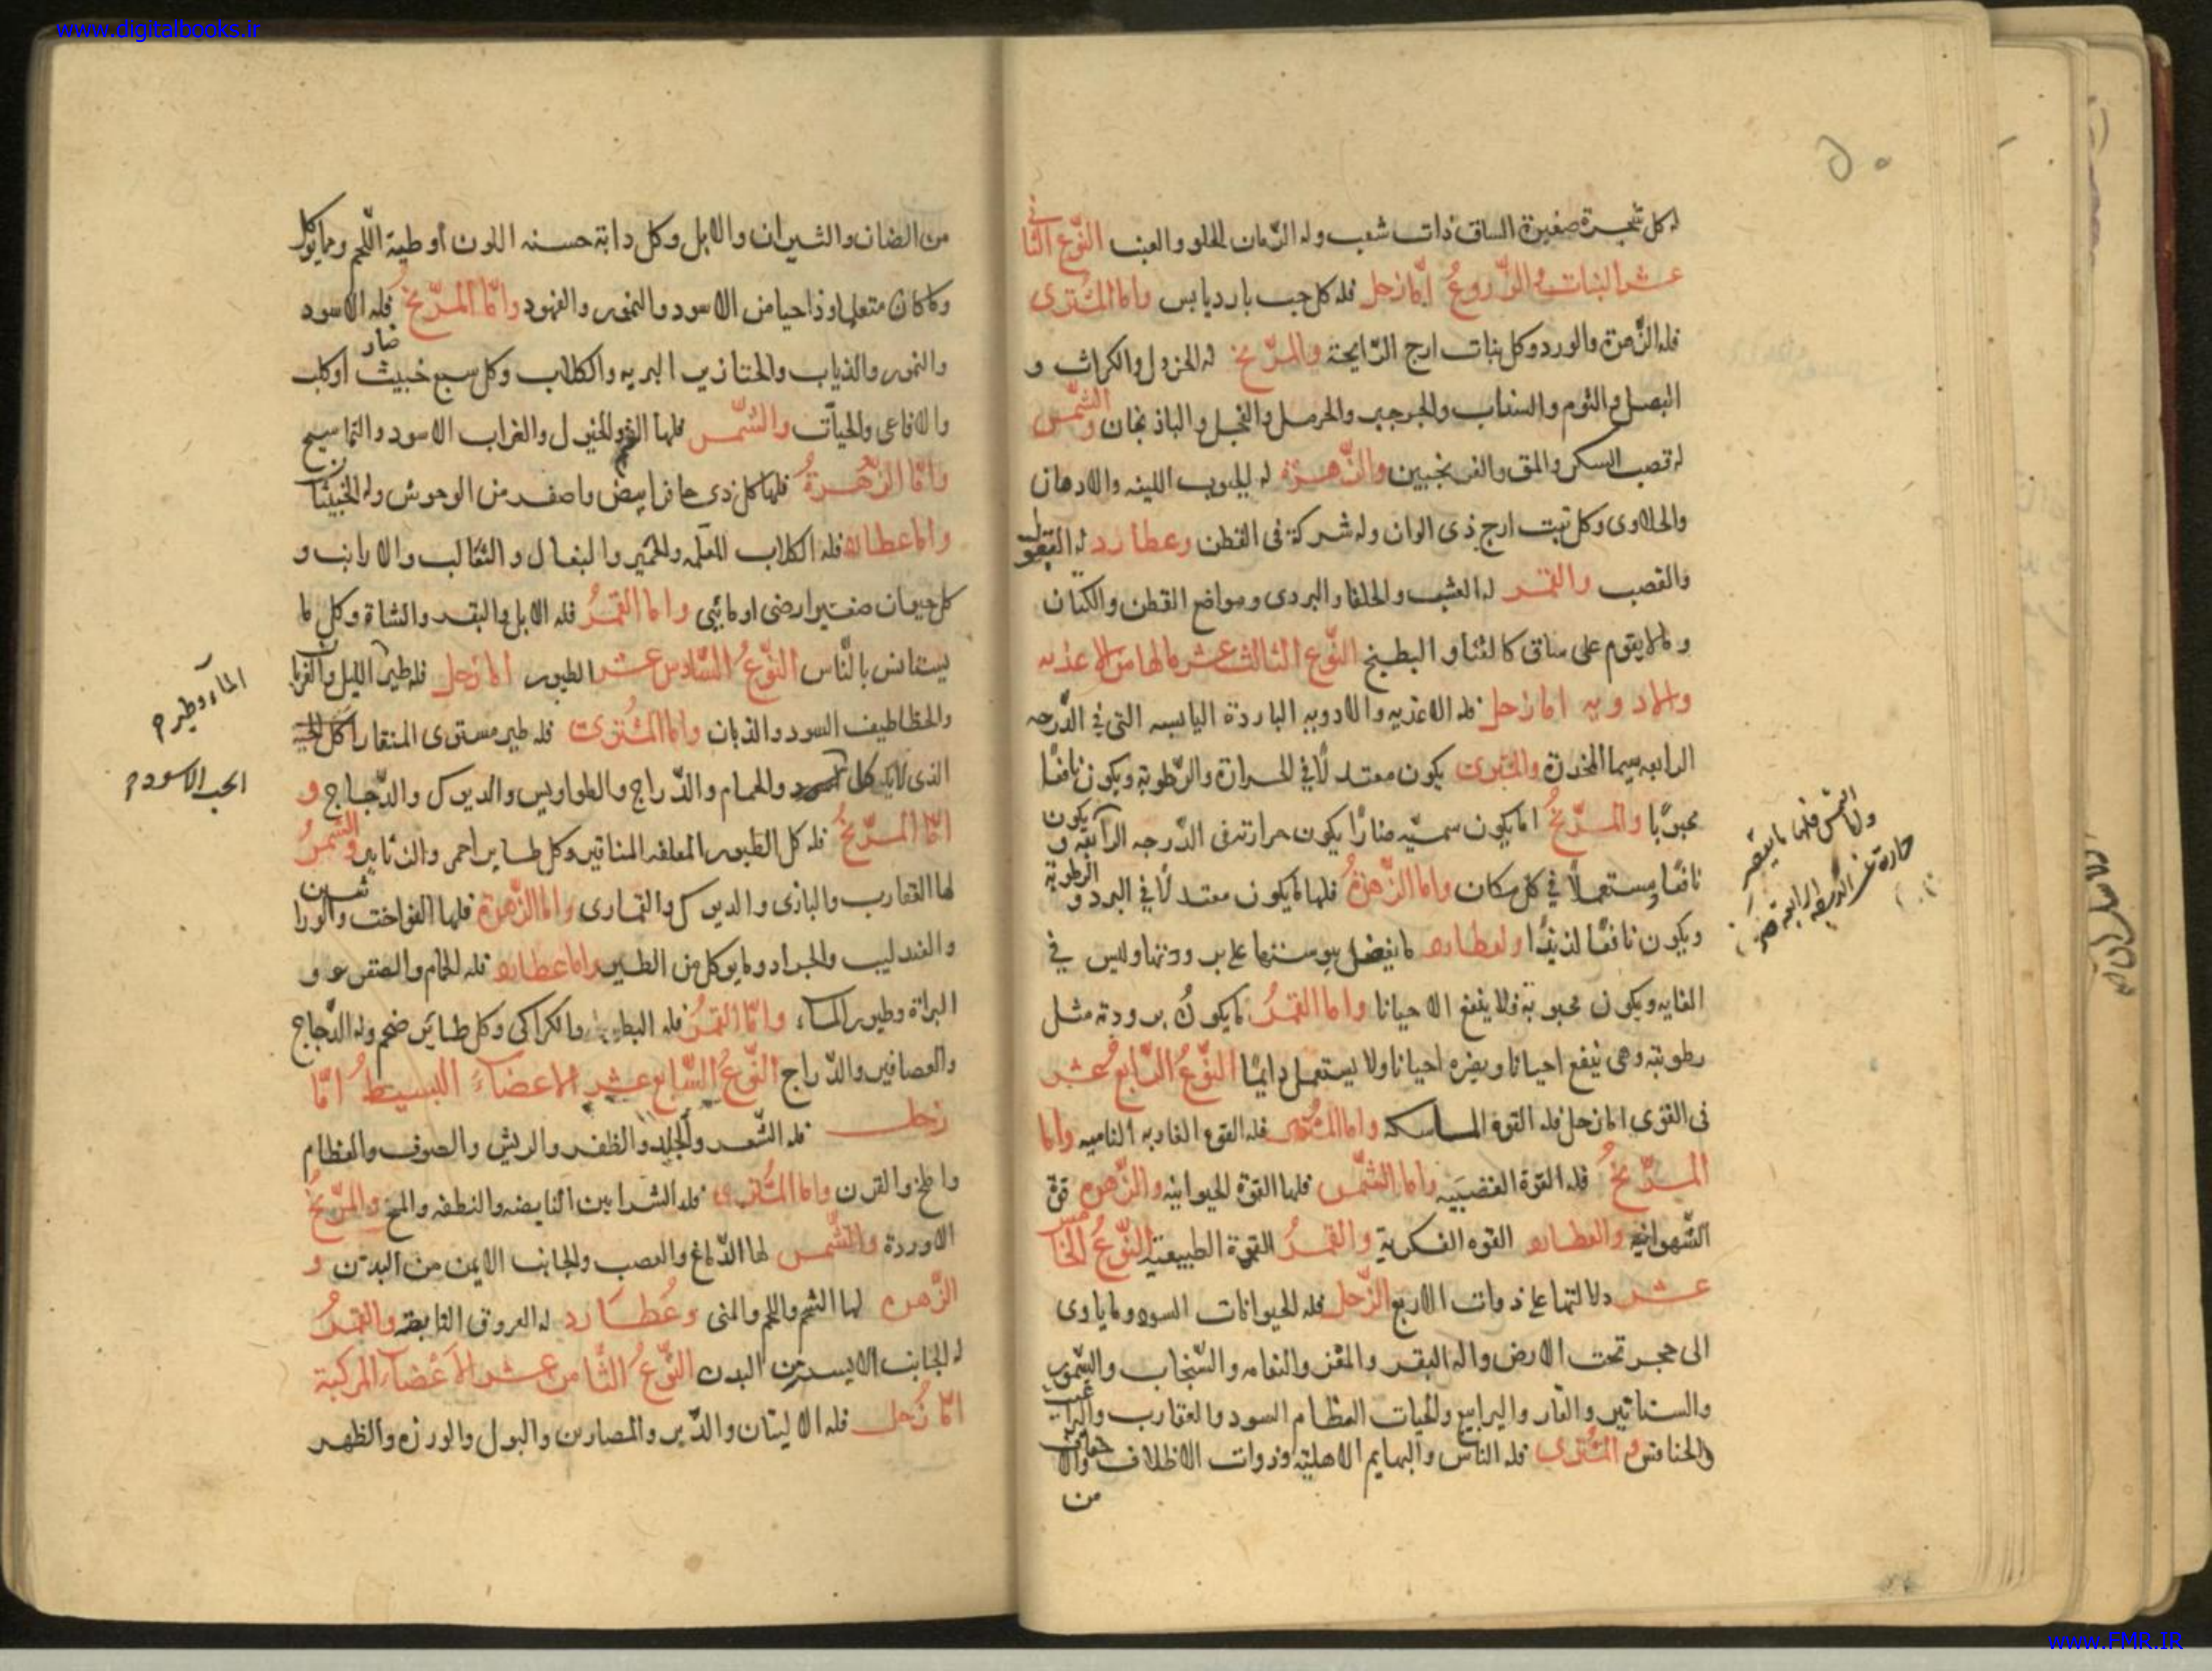 www.digitalbooks.ir
٥٠
له كل شجرة صغيرة الساق ذات شعب وله الرّمان الحلو والعنب النّوع الثانى
عشر النبات والزّروع امّا زحل فله كل حب بارد يابس واما المشترى
فله الزهرة والورد وكل نبات ارج الرّايحة والمرّيخ له الخردل والكراث و
البصل والثوم والسداب والجرجير والحرمل والفجل والباذنجان والشّمس
له قصب السكر والمن والترنجبين والزّهرة له الحبوب اللينه والادهان
والحلاوى وكل نبت ارج ذى الوان وله شركة فى القطن وعطارد له البقول
والقصب والقمر له العشب والحلفا والبردى ومواضع القطن والكتان
وما لا يقوم على ساق كالقثا والبطيخ النّوع الثالث عشر مالها من الاغذيه
والادويه اما زحل فله الاغذيه والادويه الباردة اليابسه التى فى الدّرجه
الرابعه سيما المخدرة والمشترى يكون معتدلًا فى الحرارة والرّطوبة ويكون نافعًا
محبوبًا والمرّيخُ ما يكون سميّه ضارًا يكون حرارته فى الدّرجه الرابعه ويكون
نافعًا ومستعملًا فى كل مكان واما الزّهرةُ فلها ما يكون معتدلًا فى البرد والرطوبة
ويكون نافعًا لذيذًا ولعطارد ما يفضل يبوستها على برودتها وليس فى
الغايه ويكون محبوبة ولا ينفع الا حيانا واما القمرُ ما يكونُ برودته مثل
رطوبته وهى ينفع احيانا ويضره احيانا ولا يستعمل دايمًا النّوعُ الرّابع عشر
فى القوى اما زحل فله القوة الماسكه واما المشترى فله القوة الغاديه الناميه واما
المرّيخُ فله القوة الغضبيّه واما الشّمس فلها القوة الحيوانيه والزّهره قوة
الشّهوانيه والعطارد القوه الفكرية والقمرُ القوة الطبيعيّة النّوعُ الخامس
عشر دلالتها على ذوات الاربع الزّحل فله الحيوانات السود وما ياوى
الى حجر تحت الارض وله البقر والمعز والنعامه والسّنجاب والسّمور
والسنانير والفار واليرابيع والحيات العظام السود والعقارب والبراغيث
والخنافس والمشترى فله الناس والبهايم الاهلية وذوات الاظلاف والاخفاف
من
والشمس فلها ما يكون
من الضان والثيران والابل وكل دابة حسنه اللون أو طيبة اللّحم ومما يوكل
وما كان متعلما وذا حيا من الاسود والنمور والفهود وامّا المرّيخُ فله الاسود
والنمور والذياب والخنازير البريه والكلاب وكل سبع خبيث ضار أو كلب
والافاعى والحيات والشّمس فلها الغنم والخيول والغراب الاسود والتماسيح
وامّا الزّهرةُ فلها كل ذى حافر ابيض واصفر من الوحوش وله الخبيثان
واما عطارد فله الكلاب المعلّمه والحمير والبغال والثعالب والارانب و
كل حيوان صغير ارضى او مائيى واما القمرُ فله الابل والبقر والشاة وكل ما
يستانس بالنّاس النّوعُ السّادس عشر الطيور اما زحل فله طير الليل والغربا
والخطاطيف السود والذبان واما المشترى فله طير مستوى المنقار اكل الحبة
الذى لايكون اسود والحمام والدّراج والطواويس والديوك والدّجاج و
امّا المرّيخُ فله كل الطيور المعلقه المناقير وكل طاير احمر والزنابير والشمسُ
لها العقارب والبازى والديوك والقمارى واما الزّهرة فلها الفواخت والوراشين
والعندليب والجراد وما يوكل من الطير واما عطارد فله الحمام والصقور و
البزاة وطيور الماء وامّا القمرُ فله البط والكراكى وكل طاير ضخم وله الدّجاج
والعصافير والدّراج النّوعُ السّابع عشر الاعضاء البسيط امّا
زحل فله الشّعر والجلد والظفر والريش والصوف والعظام
والمخ والقرن واما المشترى فله الشرايين النابضه والنطفه والمخ والمرّيخُ
الاوردة والشّمس لها الدّماغ والعصب والجانب الايمن من البدن و
الزّهره لها الشحم واللحم والمنى وعُطارد له العروق النابضه والقمرُ
له الجانب الايسر من البدن النّوعُ الثّامن عشر الاعضاء المركبة
امّا زُحل فله الاليتان والدّبر والمصارين والبول والوذره والظهر
الماء وطيره
الحب الاسود م
www.FMR.IR